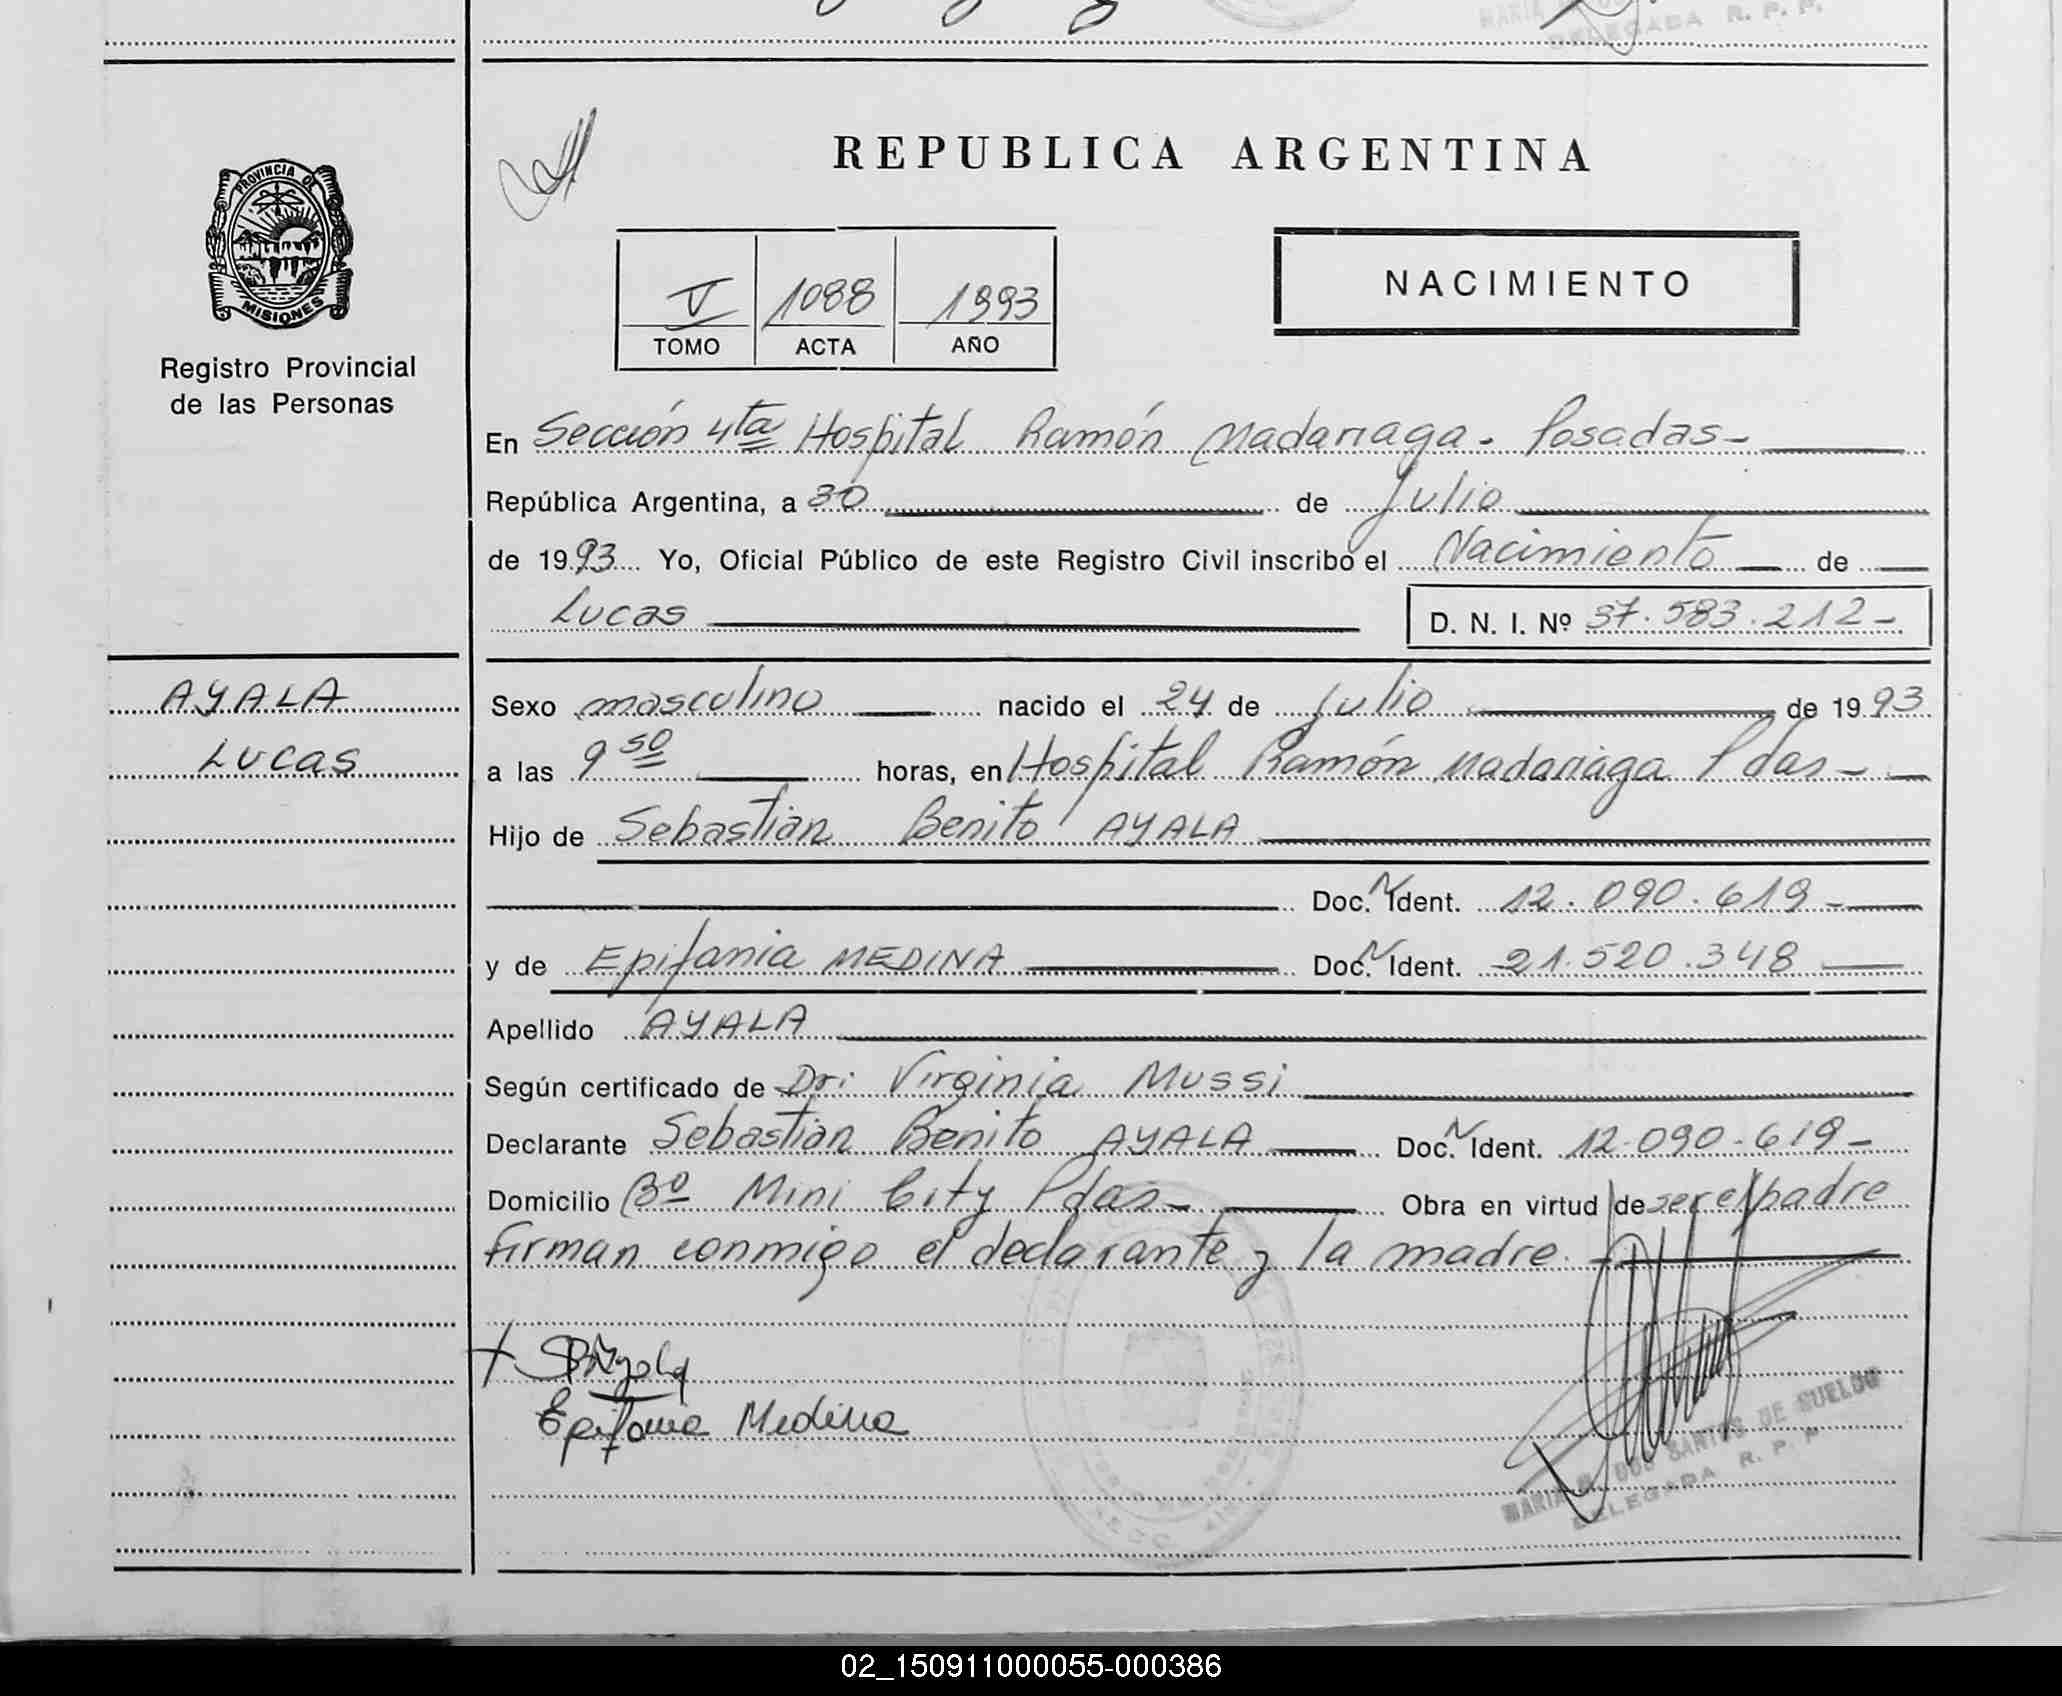 DELEGADA R. P. P.
PROVINCIA DE
MISIONES
Registro Provincial
de las Personas
REPUBLICA ARGENTINA
V 1088 1993
TOMO ACTA AÑO
NACIMIENTO
En Sección 4ta Hospital Ramón Madariaga. Posadas-
República Argentina, a 30 de Julio
de 1993 Yo, Oficial Público de este Registro Civil inscribo el Nacimiento de
Lucas D. N. I. Nº 37.583.212-
AYALA
Lucas
Sexo masculino nacido el 24 de Julio de 1993
a las 9 50 horas, en Hospital Ramón Madariaga Pdas-
Hijo de Sebastian Benito AYALA
Doc. N Ident. 12.090.619-
y de Epifania MEDINA Doc. N Ident. 21.520.348
Apellido AYALA
Según certificado de Dri Virginia Mussi
Declarante Sebastian Benito AYALA Doc. N Ident. 12.090.619-
Domicilio Bº Mini City Pdas- Obra en virtud de ser el padre
firman conmigo el declarante y la madre.
SBAyala
Epifania Medina
MARIA DOS SANTOS DE SUELDO
DELEGADA R. P. P.
02_150911000055-000386